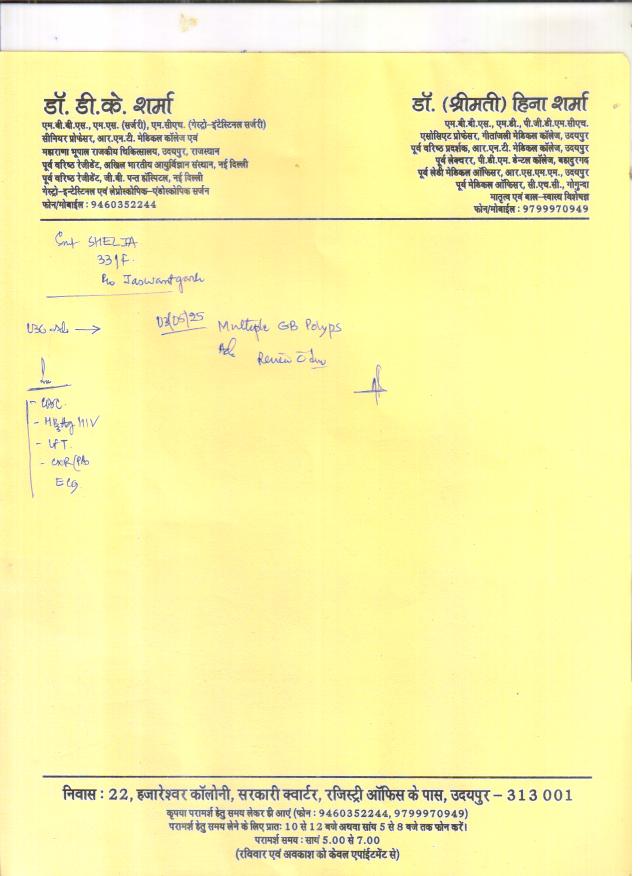 डॉ. डी.के. शर्मा
एम.बी.बी.एस., एम.एस. (सर्जरी), एम.सीएच. (गेस्ट्रो-इंटेस्टिनल सर्जरी)
सीनियर प्रोफेसर, आर.एन.टी. मेडिकल कॉलेज एवं
महाराणा भूपाल राजकीय चिकित्सालय, उदयपुर, राजस्थान
पूर्व वरिष्ठ रेजीडेंट, अखिल भारतीय आयुर्विज्ञान संस्थान, नई दिल्ली
पूर्व वरिष्ठ रेजीडेंट, जी.बी. पन्त हॉस्पिटल, नई दिल्ली
गेस्ट्रो-इन्टेस्टिनल एवं लेप्रोस्कोपिक-एंडोस्कोपिक सर्जन
फोन/मोबाईल : 9460352244
डॉ. (श्रीमती) हिना शर्मा
एम.बी.बी.एस., एम.डी., पी.जी.डी.एम.सीएच.
एसोसिएट प्रोफेसर, गीतांजली मेडिकल कॉलेज, उदयपुर
पूर्व वरिष्ठ प्रदर्शक, आर.एन.टी. मेडिकल कॉलेज, उदयपुर
पूर्व लेक्चरर, पी.डी.एम. डेन्टल कॉलेज, बहादुरगढ़
पूर्व लेडी मेडिकल ऑफिसर, आर.एस.एम.एम., उदयपुर
पूर्व मेडिकल ऑफिसर, सी.एच.सी., गोगुन्दा
मातृत्व एवं बाल-स्वास्थ्य विशेषज्ञ
फोन/मोबाईल : 9799970949
Smt SHELJA
33/F.
R/o Jaswantgarh
03/05/25 Multiple GB Polyps
Adv
Review
- CBC.
- HBsAg HIV
- LFT.
- CXR/PA
ECG
निवास : 22, हजारेश्वर कॉलोनी, सरकारी क्वार्टर, रजिस्ट्री ऑफिस के पास, उदयपुर – 313 001
कृपया परामर्श हेतु समय लेकर ही आएं (फोन : 9460352244, 9799970949)
परामर्श हेतु समय लेने के लिए प्रातः 10 से 12 बजे अथवा सांय 5 से 8 बजे तक फोन करें।
परामर्श समय : सायं 5.00 से 7.00
(रविवार एवं अवकाश को केवल एपांईटमेंट से)